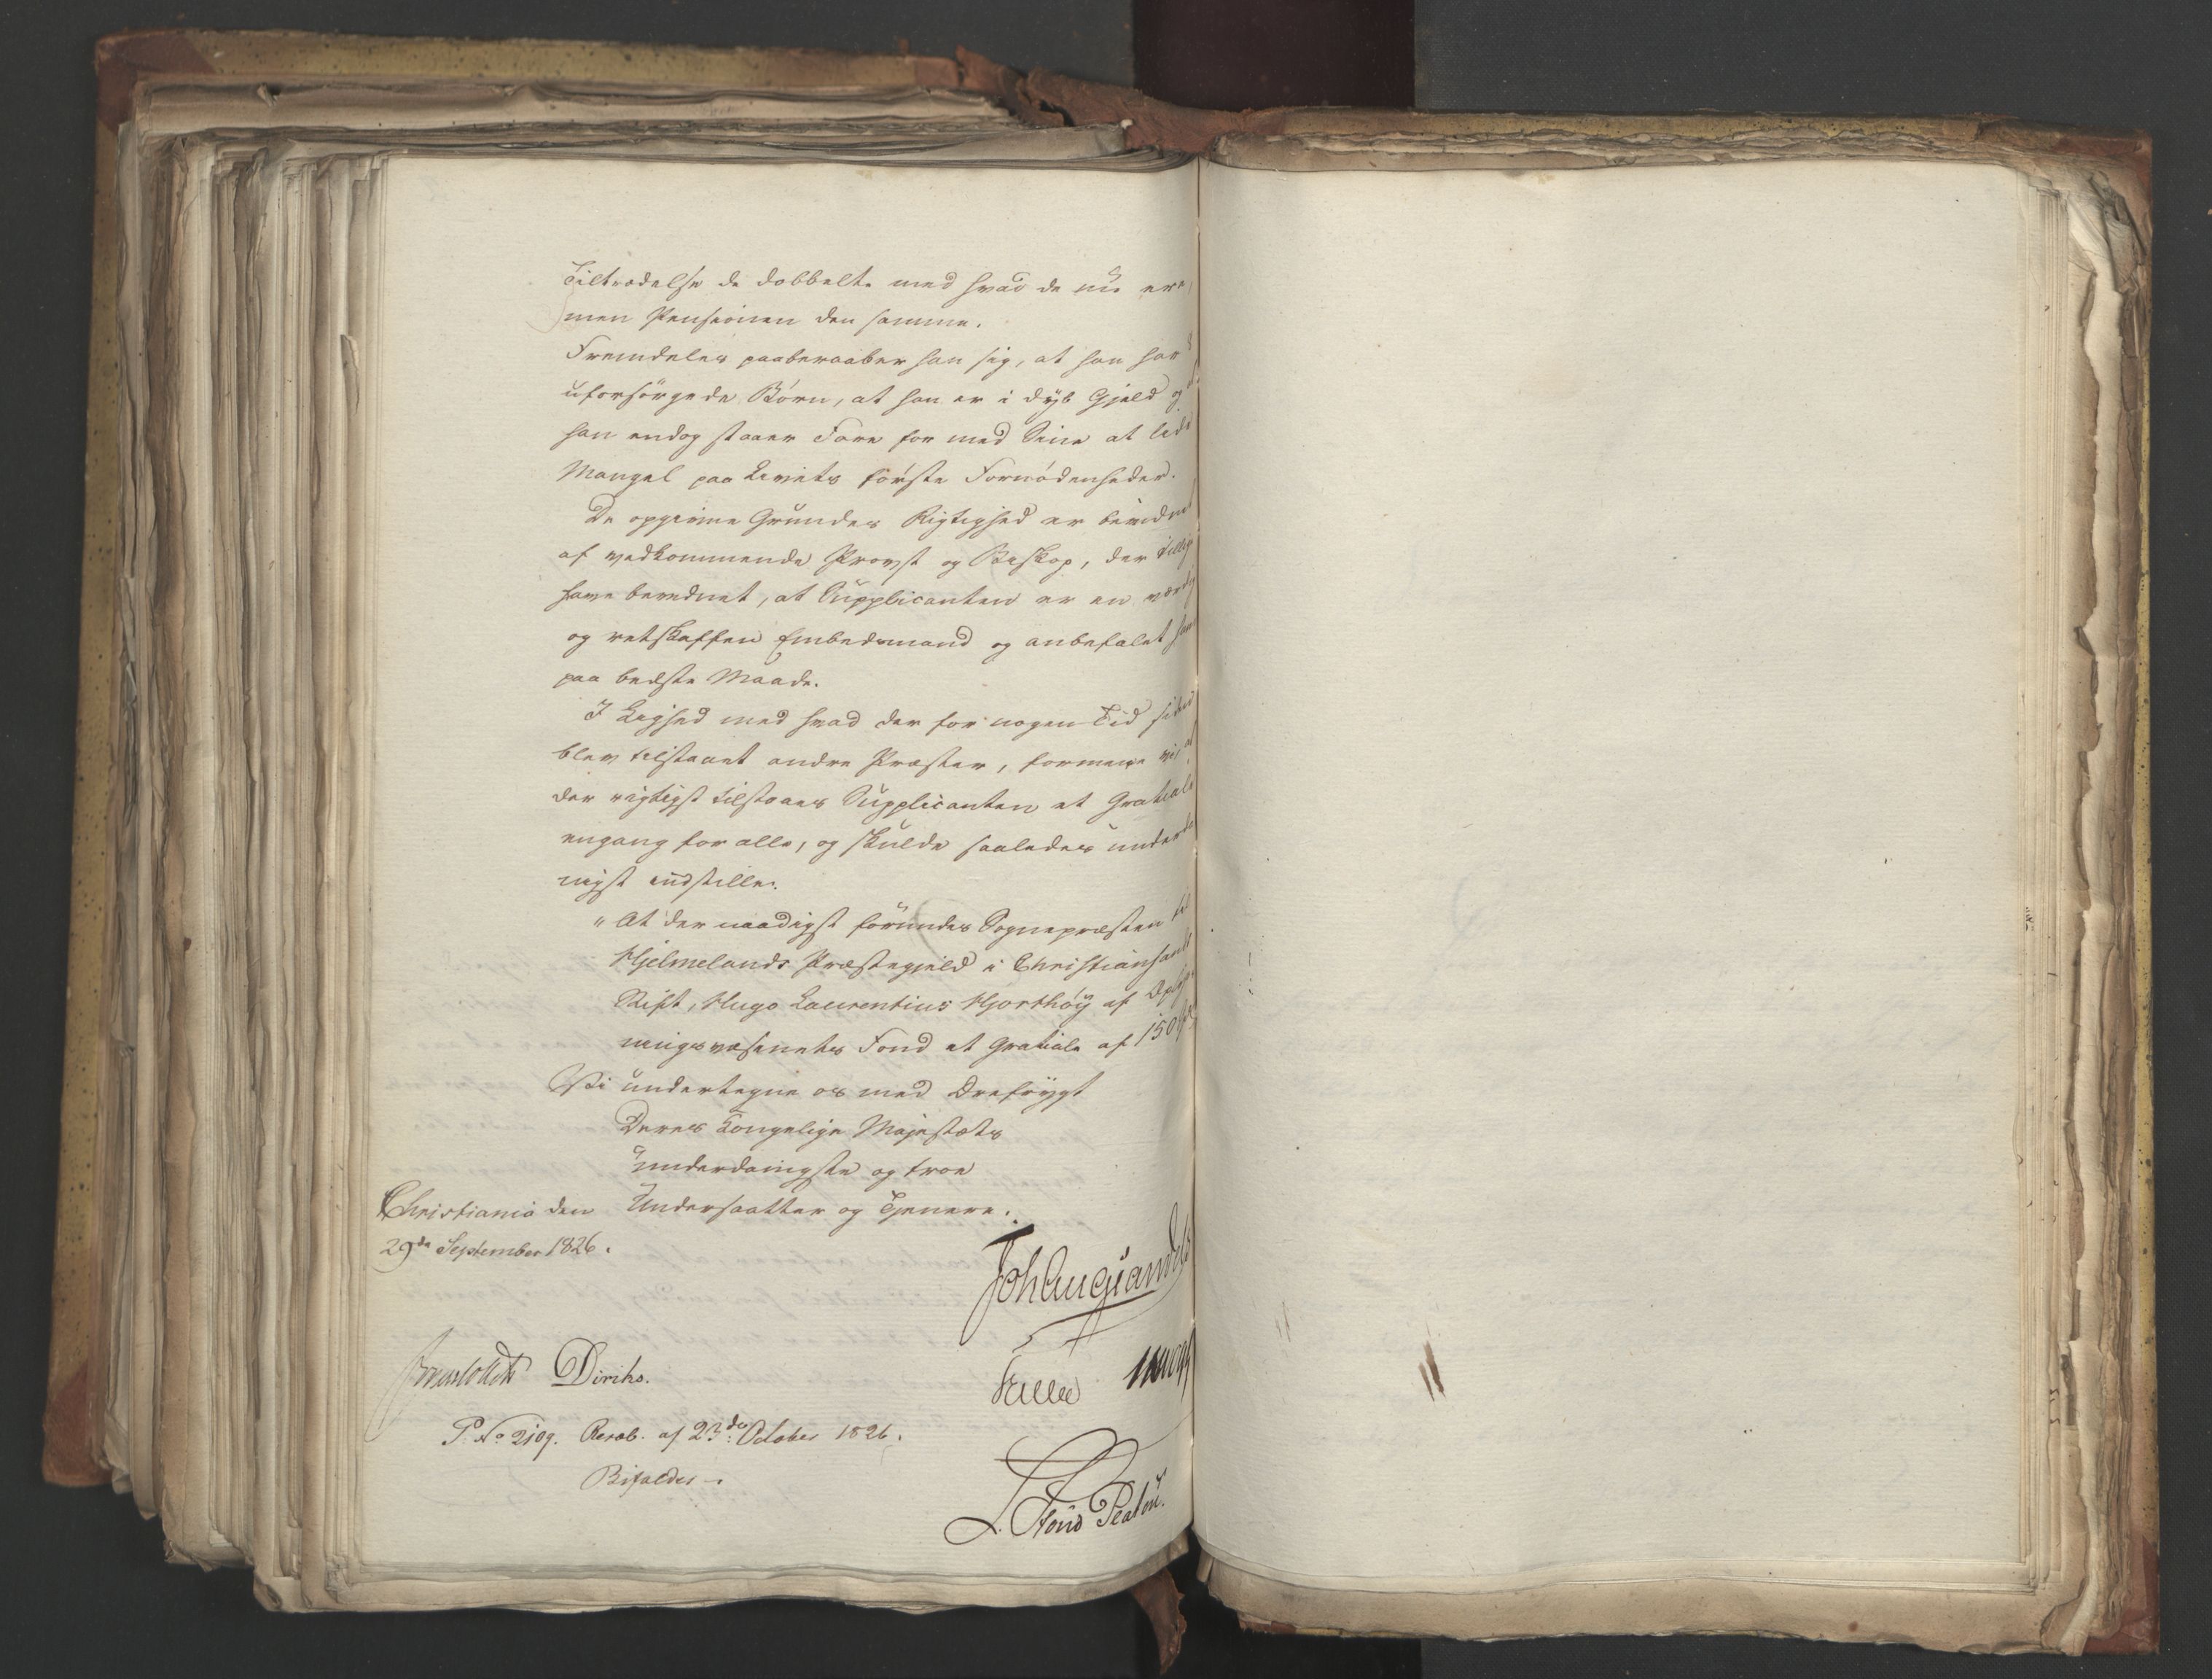 Tiltrædelse de dobbelte mod hvad de nu ere,
men Pensionen den samme.
Fremdeles paaberaaber han sig, at han har 8
uforsørgede Børn, at han er i dyb Gjæld og at
han endog staaer Fare for med Sine at lide
Mangel paa Livets første Fornødenheder.
De opgivne Grundes Rigtighed er bevidnet
af vedkommende Provst og Biskop, der tillige
have bevidnet, at Supplicanten er en værdig
og retskaffen Embedsmand og anbefalet ham
paa bedste Maade.
I Liighed med hvad der for nogen Tid siden
blev tilstaaet andre Præster, formene vi, at
der rigtigst tilstaaes Supplicanten et Gratiale
engang for alle, og skulde saaledes underda
nigst indstille:
"At der naadigst forundes Sognepræsten til
Hjelmelands Præstegjeld i Christiansands
Stift, Hugo Laurentius Hjorthøÿ af Oplys
ningsvæsenets Fond et Gratiale af 150 Spd.
Vi undertegne os med Ærefrygt
Deres Kongelige Majestæts
underdanigste og troe
Christiania den Undersaatter og Tjenere.
29de September 1826.
Joh Aug Sandels
Treschow Diriks.
P. No 2109. Resol. af 23de October 1826.
Bifaldes.
L. Stoud Platou.